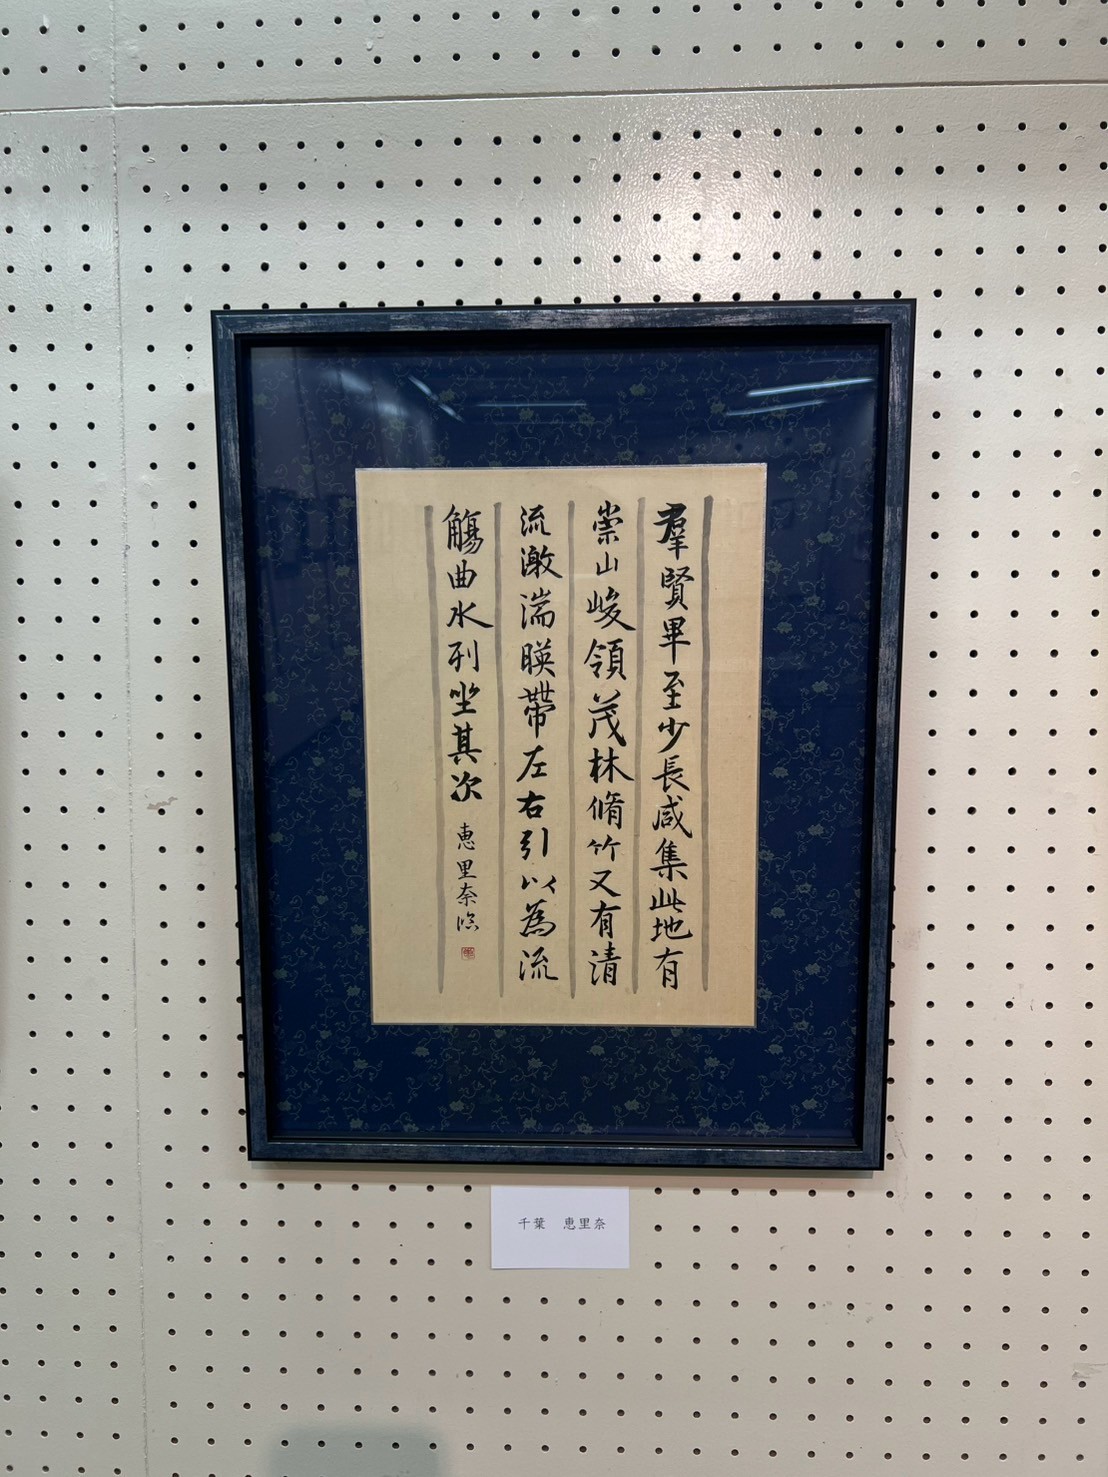 羣賢畢至少長咸集此地有
崇山峻領茂林脩竹又有清
流激湍暎帶左右引以為流
觴曲水列坐其次
恵里奈臨
千葉　恵里奈